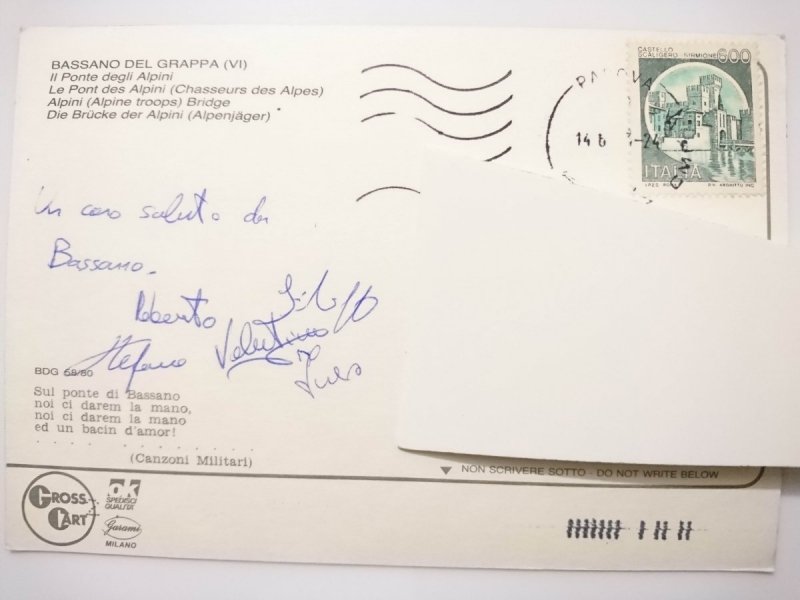 BASSANO DEL GRAPPA (VI)
Il Ponte degli Alpini
Le Pont des Alpini (Chasseurs des Alpes)
Alpini (Alpine troops) Bridge
Die Brücke der Alpini (Alpenjäger)
CASTELLO
SCALIGERO SIRMIONE
600
ITALIA
PADOVA
14
24
Un caro saluto da
Bassano.
Roberto
Stefano Valentino
BDG 58/80
Sul ponte di Bassano
noi ci darem la mano,
noi ci darem la mano
ed un bacin d'amor!
. . . . . . . . . . . . . .
(Canzoni Militari)
NON SCRIVERE SOTTO - DO NOT WRITE BELOW
GROSS
CART
OK
SPEDISCI
QUALITÀ
Garami
MILANO